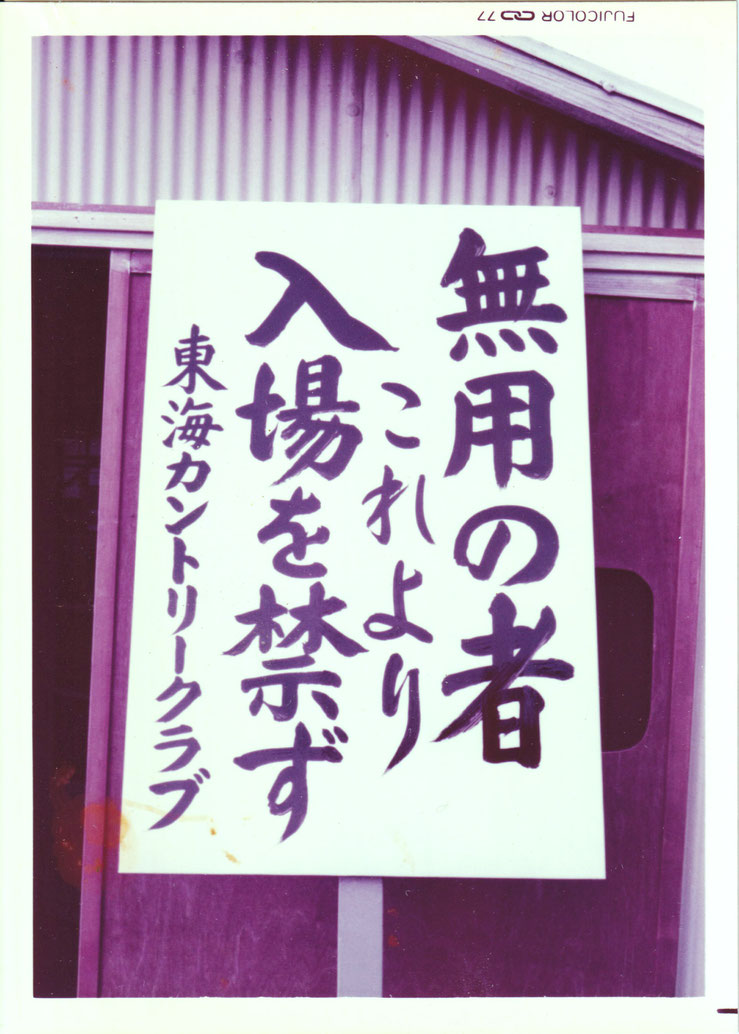 無用の者
これより
入場を禁ず
東海カントリークラブ
FUJICOLOR 77